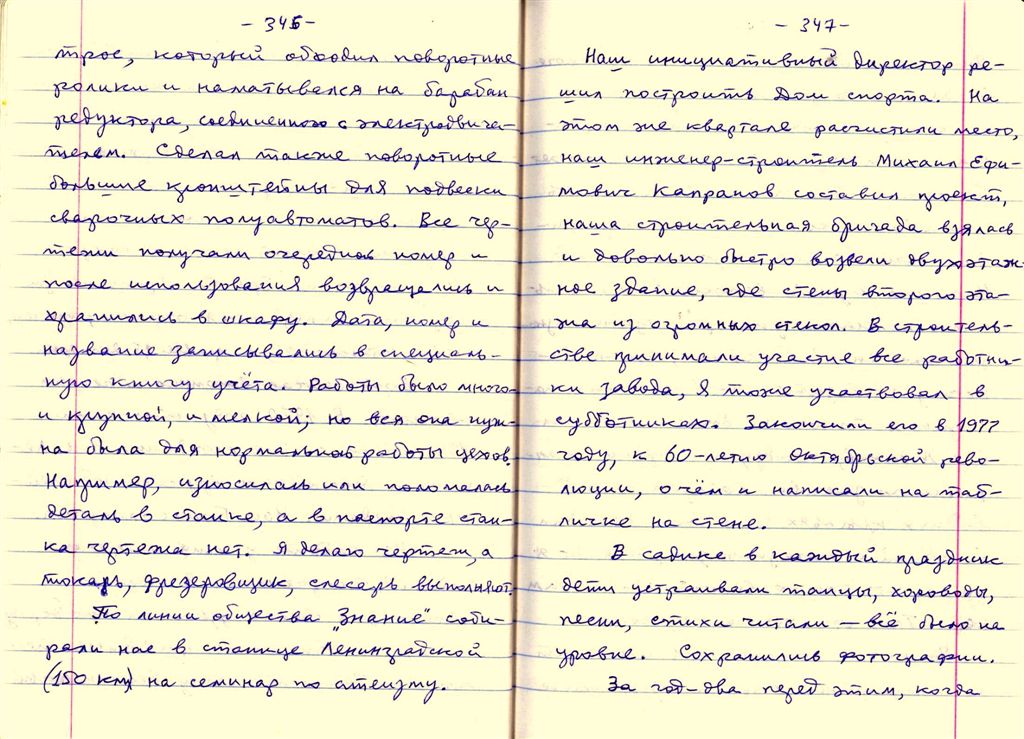 - 346 -
трос, который обходил поворотные
ролики и наматывался на барабан
редуктора, соединенного с электродвига-
телем. Сделал также поворотные
большие кронштейны для подвески
сварочных полуавтоматов. Все чер-
тежи получали очередной номер и
после использования возвращались и
хранились в шкафу. Дата, номер и
название записывались в специаль-
ную книгу учёта. Работы было много
и крупной, и мелкой; но вся она нуж-
на была для нормальной работы цехов.
Например, износилась или поломалась
деталь в станке, а в паспорте стан-
ка чертежа нет. Я делаю чертеж, а
токарь, фрезеровщик, слесарь выполняют.
По линии общества "Знание" соби-
рали нас в станице Ленинградской
(150 км) на семинар по атеизму.
- 347 -
Наш инициативный директор ре-
шил построить Дом спорта. На
этом же квартале расчистили место,
наш инженер-строитель Михаил Ефи-
мович Капранов составил проект,
наша строительная бригада взялась
и довольно быстро возвели двухэтаж-
ное здание, где стены второго эта-
жа из огромных стекол. В строитель-
стве принимали участие все работни-
ки завода, я тоже участвовал в
субботниках. Закончили его в 1977
году, к 60-летию Октябрьской рево-
люции, о чём и написали на таб-
личке на стене.
В садике в каждый праздник
дети устраивали танцы, хороводы,
песни, стихи читали — всё было на
уровне. Сохранились фотографии.
За год-два перед этим, когда